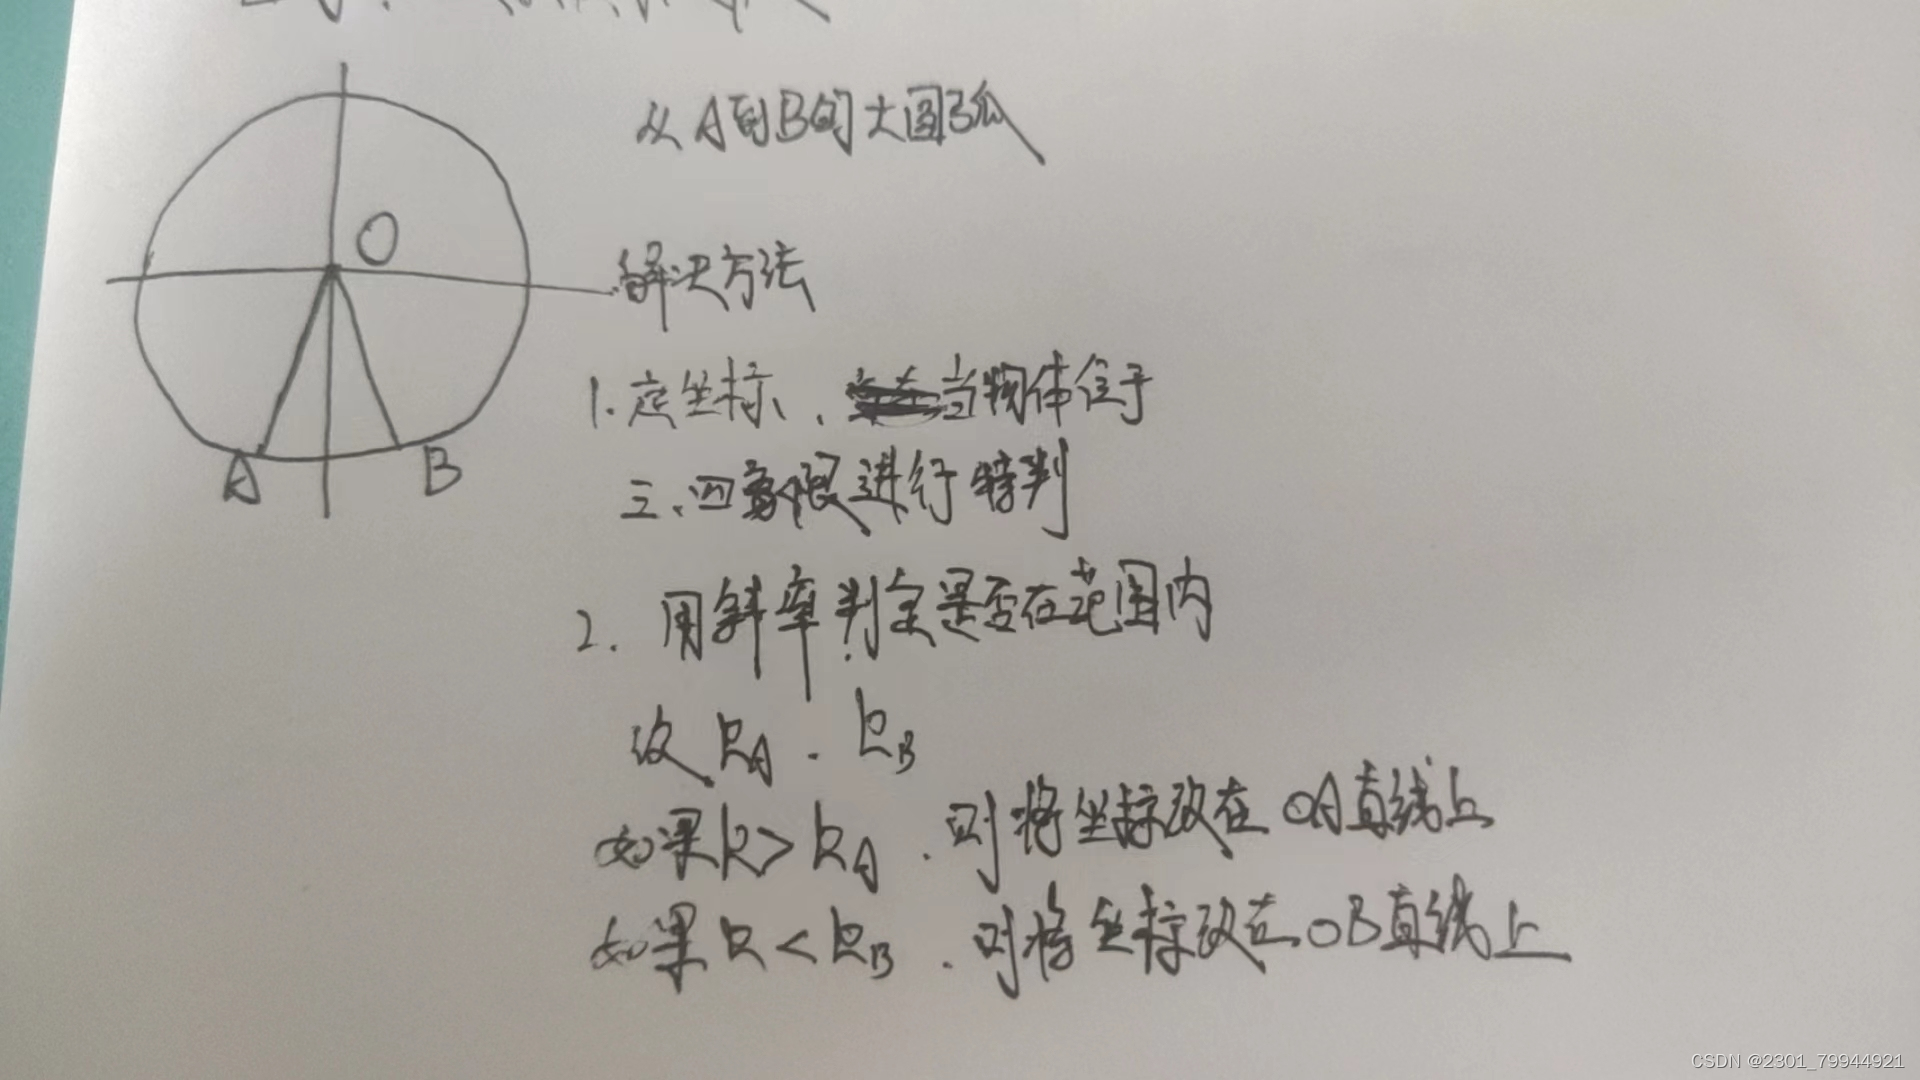 从A到B的大圆弧
O
解决方法
1.定坐标、当物体位于
三、四象限进行特判
A
B
2. 用斜率判定是否在范围内
设 kA . kB
如果k>kA . 则将坐标放在OA直线上
如果k<kB . 则将坐标放在OB直线上
CSDN @2301_79944921